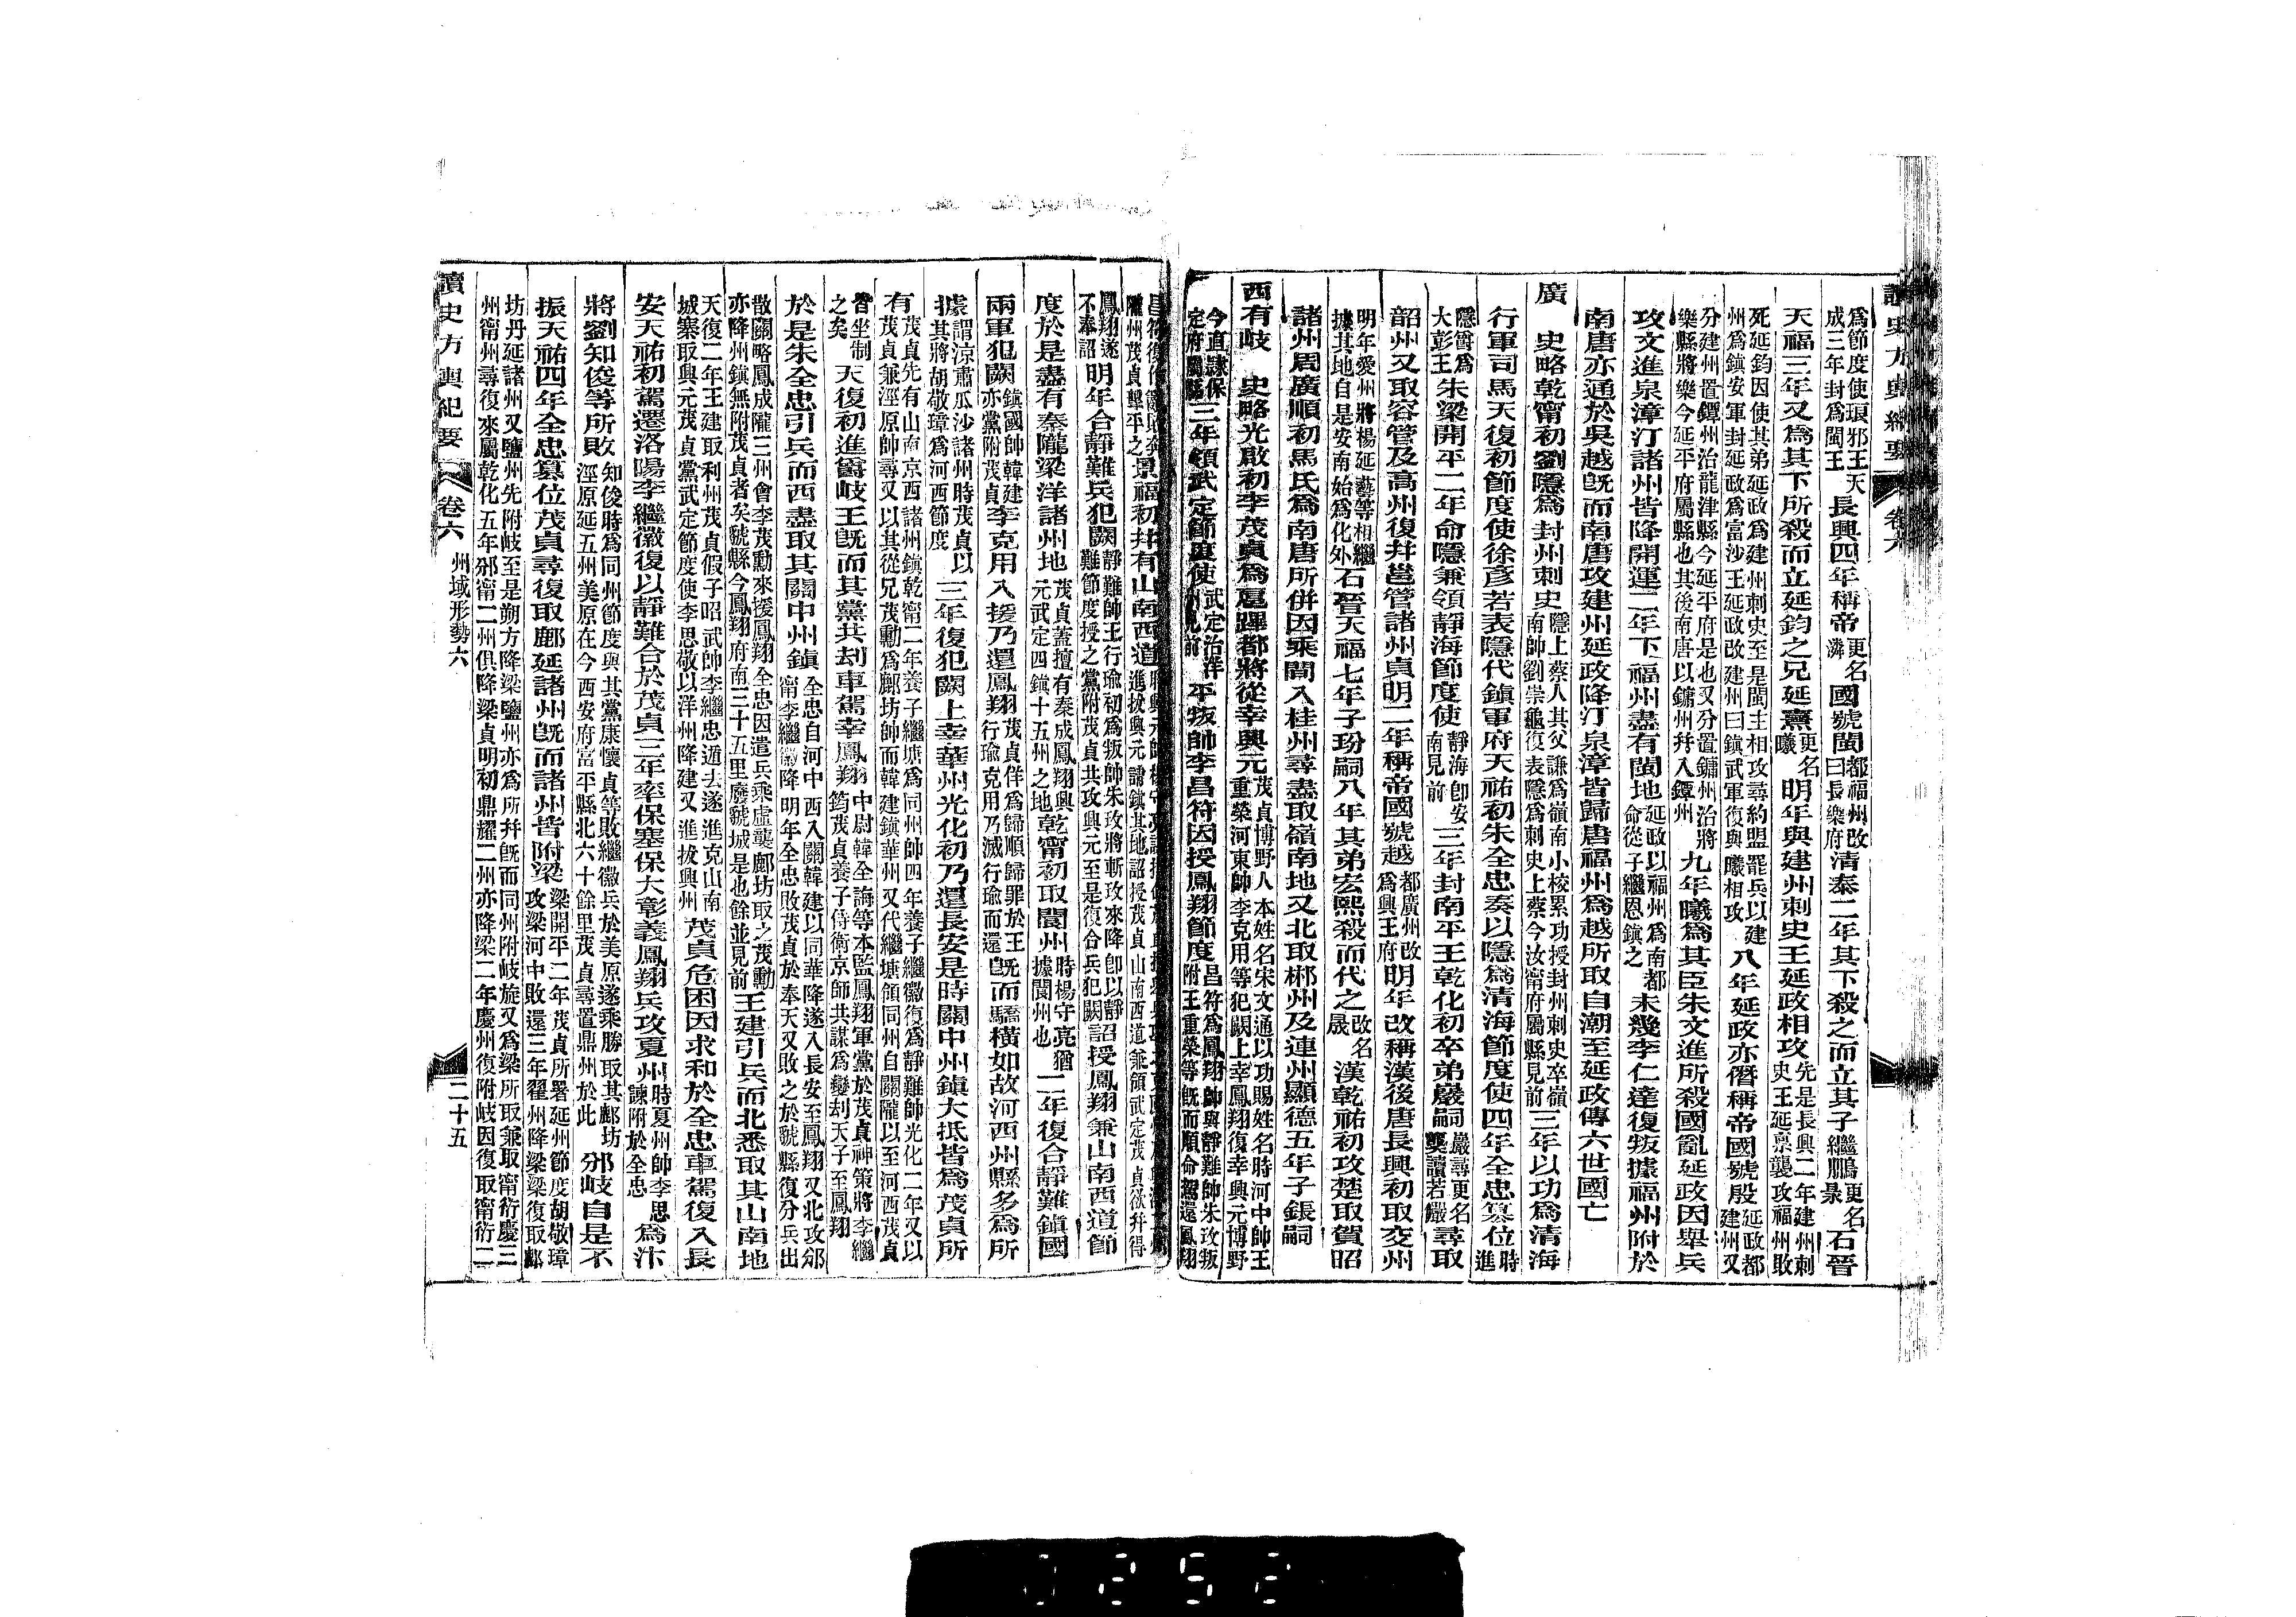 爲節度使琅邪王天成三年封爲閩王長興四年稱帝更名鏻國號閩都福州改曰長樂府清泰二年其下殺之而立其子繼鵬更名昶石晉
天福三年又爲其下所殺而立延鈞之兄延羲更名曦明年與建州刺史王延政相攻先是長興二年建州刺史王延禀襲攻福州敗
死延鈞因使其弟延政爲建州刺史至是閩主相攻尋約盟罷兵以建州爲鎮安軍封延政爲富沙王延政改建州曰鎮武軍復與曦相攻八年延政亦僭稱帝國號殷延政都建州又
分建州置鐔州治龍津縣今延平府是也又分置鏞州治將樂縣將樂今延平府屬縣也其後南唐以鏞州幷入鐔州九年曦爲其臣朱文進所殺國亂延政因舉兵
攻文進泉漳汀諸州皆降開運二年下福州盡有閩地延政以福州爲南都命從子繼恩鎮之未幾李仁達復叛據福州附於
南唐亦通於吳越旣而南唐攻建州延政降汀泉漳皆歸唐福州爲越所取自潮至延政傳六世國亡
廣　史略乾甯初劉隱爲封州刺史隱上蔡人其父謙爲嶺南小校累功授封州刺史卒嶺南帥劉崇龜復表隱爲刺史上蔡今汝甯府屬縣見前三年以功爲清海
行軍司馬天復初節度使徐彦若表隱代鎮軍府天祐初朱全忠奏以隱爲清海節度使四年全忠篡位時進
隱爵爲大彭王朱梁開平二年命隱兼領靜海節度使靜海卽安南見前三年封南平王乾化初卒弟巖嗣巖尋更名龑讀若儼尋取
韶州又取容管及高州復幷邕管諸州貞明二年稱帝國號越都廣州改爲興王府明年改稱漢後唐長興初取交州
明年愛州將楊延藝等相繼據其地自是安南始爲化外石晉天福七年子玢嗣八年其弟宏熙殺而代之改名晟漢乾祐初攻楚取賀昭
諸州周廣順初馬氏爲南唐所併因乘閒入桂州尋盡取嶺南地又北取郴州及連州顯德五年子鋹嗣
西有岐　史略光啟初李茂貞爲扈蹕都將從幸興元茂貞博野人本姓名宋文通以功賜姓名時河中帥王重榮河東帥李克用等犯闕上幸鳳翔復幸興元博野
今直隸保定府屬縣三年領武定節度使武定治洋州見前平叛帥李昌符因授鳳翔節度昌符爲鳳翔帥與靜難帥朱玫叛附王重榮等旣而順命駕還鳳翔
隴州茂貞擊平之景福初幷有山南西道
鳳翔遂不奉詔明年合靜難兵犯闕靜難帥王行瑜初爲叛帥朱玫將斬玫來降卽以靜難節度授之黨附茂貞共攻興元至是復合兵犯闕詔授鳳翔兼山南西道節
度於是盡有秦隴梁洋諸州地茂貞蓋擅有秦成鳳翔興元武定四鎮十五州之地乾甯初取閬州時楊守亮猶據閬州也二年復合靜難鎮國
兩軍犯闕鎮國帥韓建亦黨附茂貞李克用入援乃還鳳翔茂貞佯爲歸順歸罪於王行瑜克用乃滅行瑜而還旣而驕橫如故河西州縣多爲所
據謂涼肅瓜沙諸州時茂貞以其將胡敬璋爲河西節度三年復犯闕上幸華州光化初乃還長安是時關中州鎮大抵皆爲茂貞所
有茂貞先有山南京西諸州鎮乾甯二年養子繼塘爲同州帥四年養子繼徽復爲靜難帥光化二年又以茂貞兼涇原帥尋又以其從兄茂勳爲鄜坊帥而韓建鎮華州又代繼塘領同州自關隴以至河西茂貞
皆坐制之矣天復初進爵岐王旣而其黨共刦車駕幸鳳翔中尉韓全誨等本監鳳翔軍黨於茂貞神策將李繼筠茂貞養子侍衛京師共謀爲變刦天子至鳳翔
於是朱全忠引兵而西盡取其關中州鎮全忠自河中西入關韓建以同華降遂入長安至鳳翔又北攻邠甯李繼徽降明年全忠敗茂貞於奉天又敗之於虢縣復分兵出
散關略鳳成隴三州會李茂勳來援鳳翔全忠因遣兵乘虛襲鄜坊取之茂勳亦降州鎮無附茂貞者矣虢縣今鳳翔府南三十五里廢虢城是也餘並見前王建引兵而北悉取其山南地
天復二年王建取利州茂貞假子昭武帥李繼忠遁去遂進克山南城寨取興元茂貞黨武定節度使李思敬以洋州降建又進拔興州茂貞危困因求和於全忠車駕復入長
安天祐初駕遷洛陽李繼徽復以靜難合於茂貞三年率保塞保大彰義鳳翔兵攻夏州時夏州帥李思諫附於全忠爲汴
將劉知俊等所敗知俊時爲同州節度與其黨康懷貞等敗繼徽兵於美原遂乘勝取其鄜坊涇原延五州美原在今西安府富平縣北六十餘里茂貞尋置鼎州於此邠岐自是不
振天祐四年全忠篡位茂貞尋復取鄜延諸州旣而諸州皆附梁梁開平二年茂貞所署延州節度胡敬璋攻梁河中敗還三年翟州降梁梁復取鄜
坊丹延諸州又鹽州先附岐至是朔方降梁鹽州亦爲所幷旣而同州附岐旋又爲梁所取兼取甯衍慶三州甯州尋復來屬乾化五年邠甯二州俱降梁貞明初鼎耀二州亦降梁二年慶州復附岐因復取甯衍二
讀史方輿紀要　卷六　州域形勢六　二十五